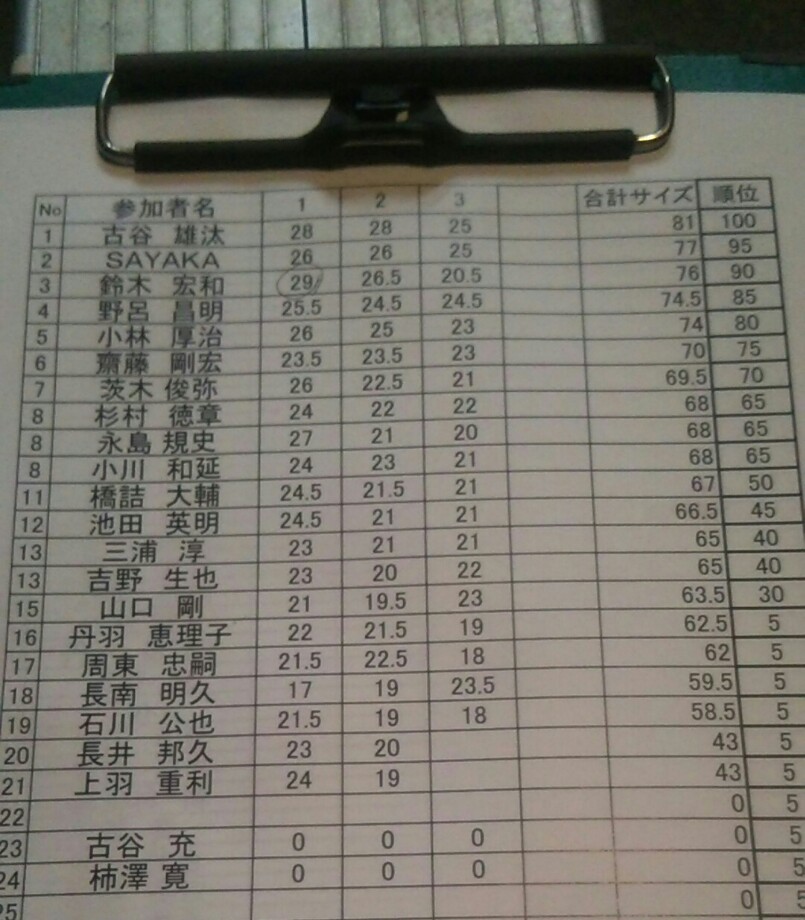 No 参加者名 1 2 3 合計サイズ 順位
1 古谷 雄汰 28 28 25 81 100
2 SAYAKA 26 26 25 77 95
3 鈴木 宏和 29 26.5 20.5 76 90
4 野呂 昌明 25.5 24.5 24.5 74.5 85
5 小林 厚治 26 25 23 74 80
6 齋藤 剛宏 23.5 23.5 23 70 75
7 茨木 俊弥 26 22.5 21 69.5 70
8 杉村 徳章 24 22 22 68 65
8 永島 規史 27 21 20 68 65
8 小川 和延 24 23 21 68 65
11 橋詰 大輔 24.5 21.5 21 67 50
12 池田 英明 24.5 21 21 66.5 45
13 三浦 淳 23 21 21 65 40
13 吉野 生也 23 20 22 65 40
15 山口 剛 21 19.5 23 63.5 30
16 丹羽 恵理子 22 21.5 19 62.5 5
17 周東 忠嗣 21.5 22.5 18 62 5
18 長南 明久 17 19 23.5 59.5 5
19 石川 公也 21.5 19 18 58.5 5
20 長井 邦久 23 20 43 5
21 上羽 重利 24 19 43 5
22 0 5
23 古谷 充 0 0 0 0 5
24 柿澤 寛 0 0 0 0 5
25 0 5